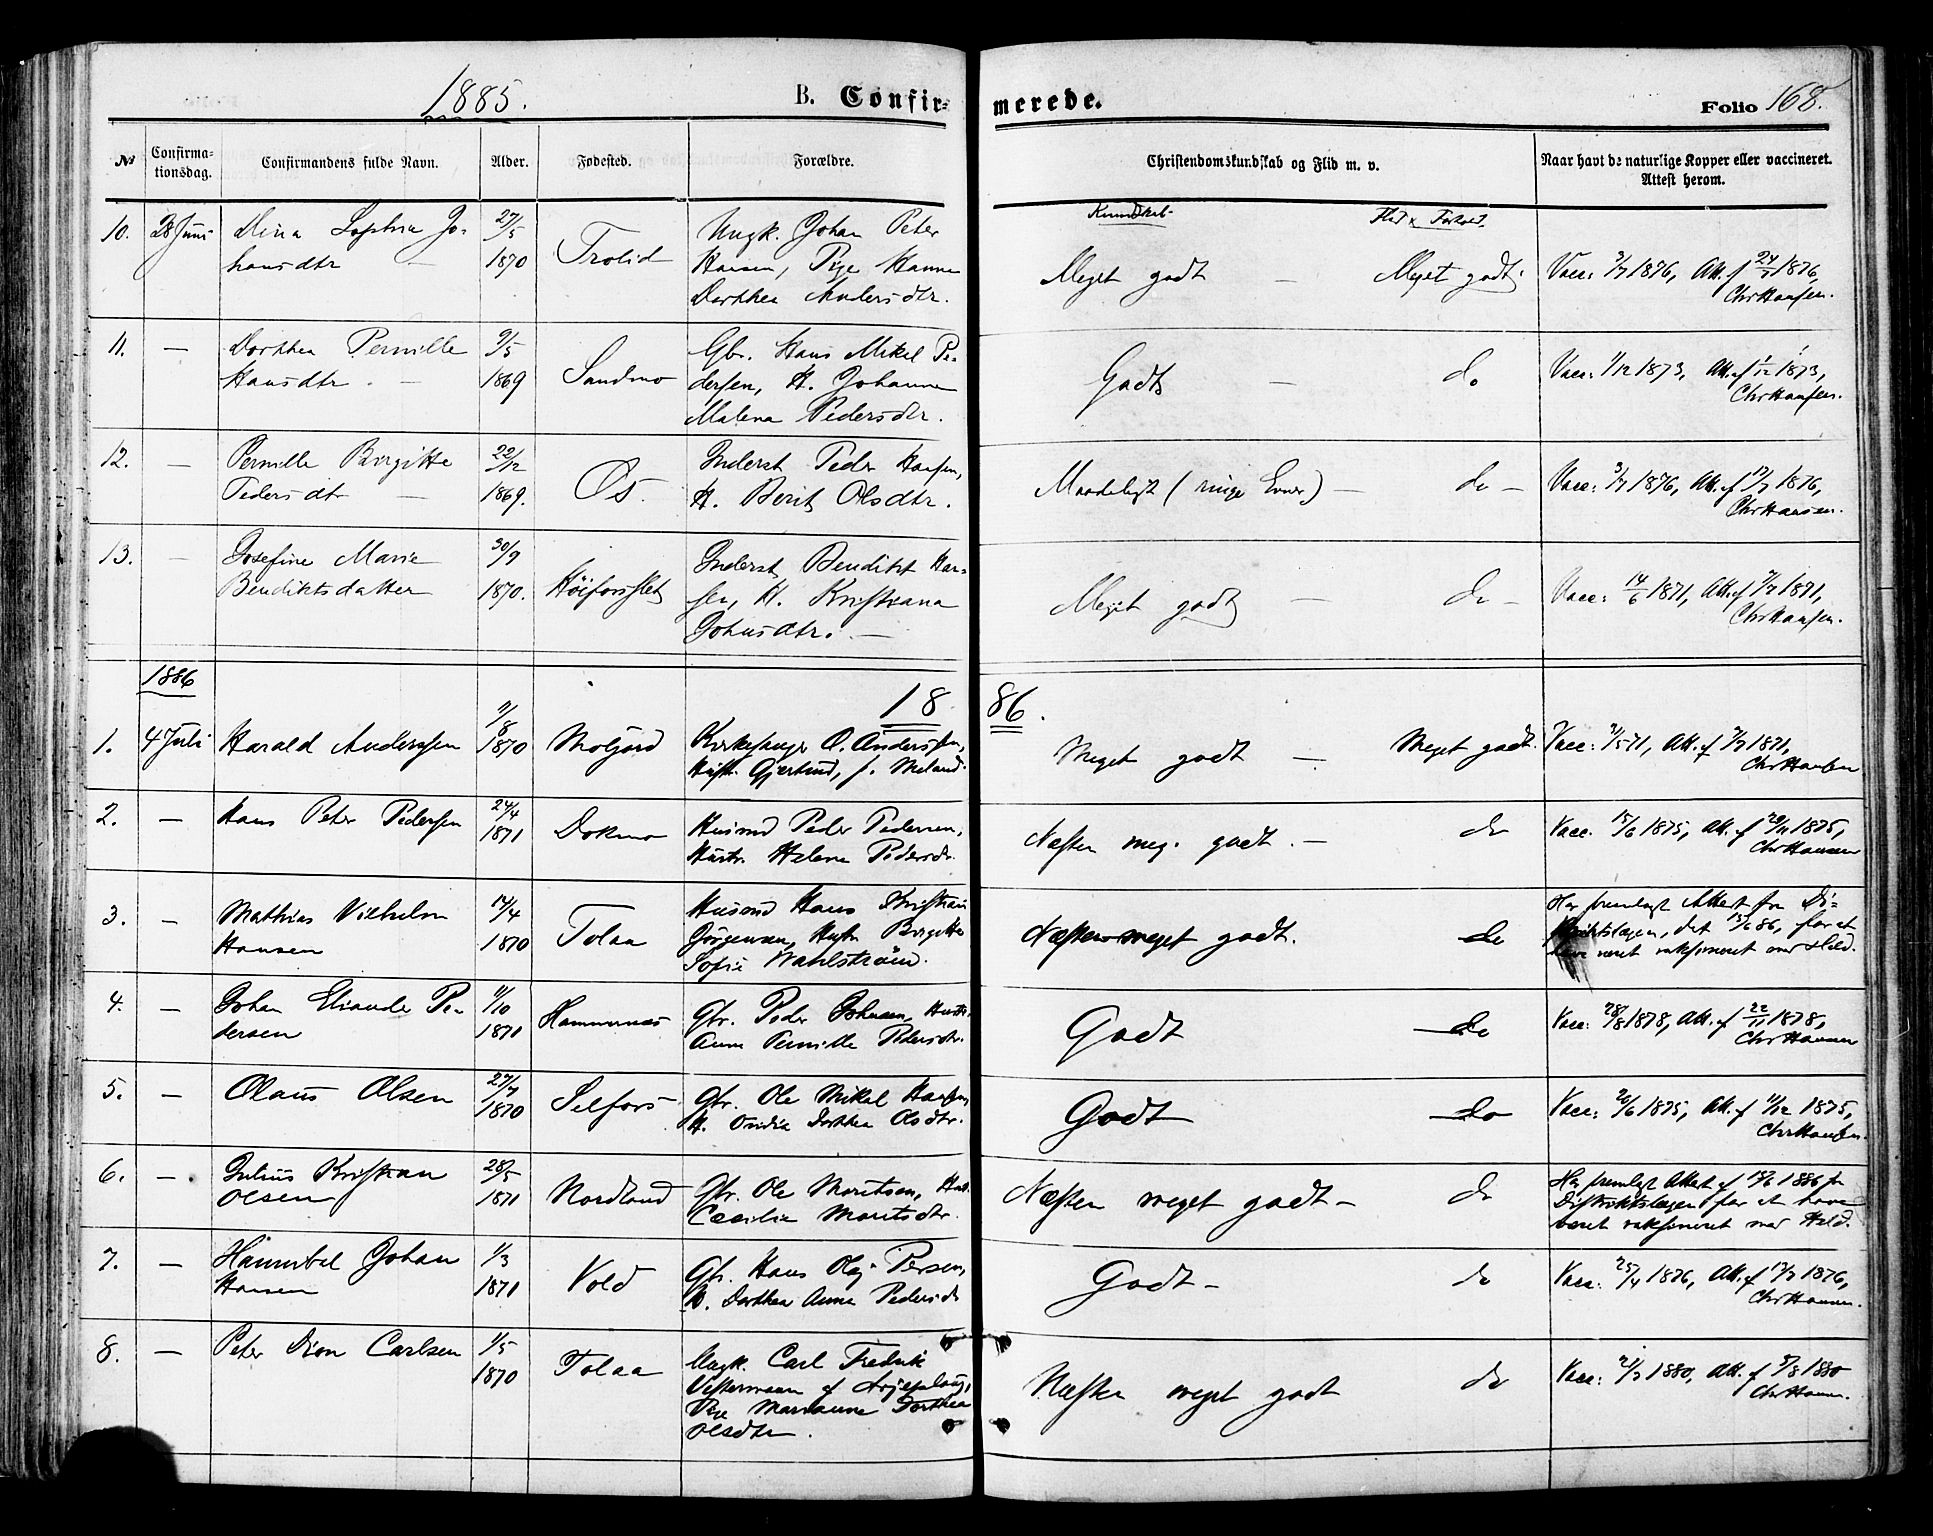 1885.
B. Confir-
merede.
Folio 168.
№
Confirma-
tionsdag.
Confirmandens fulde Navn.
Alder.
Fødested.
Forældre.
Christendomskundskab og Flid m. v.
Naar havt de naturlige Kopper eller vaccineret.
Attest herom.
Kundskab
Flid & Forhold.
10. 28 Juni Dina Sophie Jo- 27/5 Ungk. Johan Peter
hansdtr — 1870 Trolid Hansen, Pige Hanna
Dorthea Andersdtr.
Meget godt — Meget godt. Vacc: 3/7 1876, Att. f 24/7 1876,
Chr Hansen.
11. — Dorthea Pernille 9/5 Gbr. Hans Mikal Pe-
Hansdtr. — 1869 Sandmo dersen, H. Johanna
Malena Pedersdtr.
Godt — do Vacc: 1/12 1873, Att. f 1/12 1873,
Chr Hansen.
12. — Pernille Birgitte 22/12 Inderst Peder Hansen,
Pedersdtr — 1869. Øs. H. Berit Olsdtr.
Maadeligt (ringe Evner) — do — Vacc: 3/7 1876, Att. f 17/7 1876,
Chr Hansen.
13. — Josefine Marie 30/9 Inderst Bendikt Han-
Bendiktsdatter 1870. Høiforsslet sen, H. Kristiana
Johnsdtr. —
Meget godt — do — Vacc: 14/6 1871, Att. f 7/7 1871,
Chr Hansen.
1886
18 86.
1. 4 Juli Harald Anderssen 9/8 1870 Moljord Kirkesanger O. Anderssen,
Hustr. Gjertrud, f. Meland.
Meget godt — Meget godt. Vacc: 7/5 71, Att. f 7/7 1871,
Chr Hansen
2. — Hans Peter Pedersen 24/4 1871 Dokmo Husmd Peder Pedersen,
Hustr. Helena Pedersdtr.
Næsten meg. godt. — do Vacc. 15/6 1875, Att. f 29/11 1875,
Chr Hansen
3. — Mathias Vilhelm 14/4 Husmd Hans Kristian
Hansen 1870 Tolaa Jørgensen, Hustr Birgitte
Sofie Wahlstrøm.
Næsten meget godt. do Har fremlagt Attest fra Di-
striktslægen, dat 15/6 86, for at
have været vaksineret med Held.
4. — Johan Elisander Pe- 11/10 Gbr. Peder Johnsen, Hustr.
dersen 1871 Hammernæs Anne Pernille Pedersdtr.
Godt do Vacc: 28/8 1878, Att. f 22/11 1878,
Chr Hansen
5. — Olaus Olsen 27/7 1870 Selfors Gbr. Ole Mikal Hansen,
H. Dorthea Olsdtr.
Godt do Vacc: 20/6 1875, Att. f 11/12 1875,
Chr Hansen.
6. — Julius Kristian 28/5
Olsen 1871 Nordland Gbr. Ole Moritsen, Hust.
Cecilia Moritsdtr.
Næsten meget godt — do Har fremlagt Attest af 15/6 1886 fra
Distriktslægen for at have
været vaksineret med Held.
7. — Hannibal Johan 1/3
Hansen 1871 Vold Gbr. Hans Olaj Persen,
H. Dorthea Anna Pedersd.
Godt — do Vacc: 25/4 1876, Att. f 17/7 1876,
Chr Hansen.
8. — Peter Dion Carlsen 1/5 Ungk. Carl Fredrik
1870 Tolaa Vesterman af Arjeplaug,
Pige Marianne Dorthea
Olsdtr.
Næsten meget godt do Vacc: 21/7 1880, Att. f 5/8 1880
Chr Hansen.